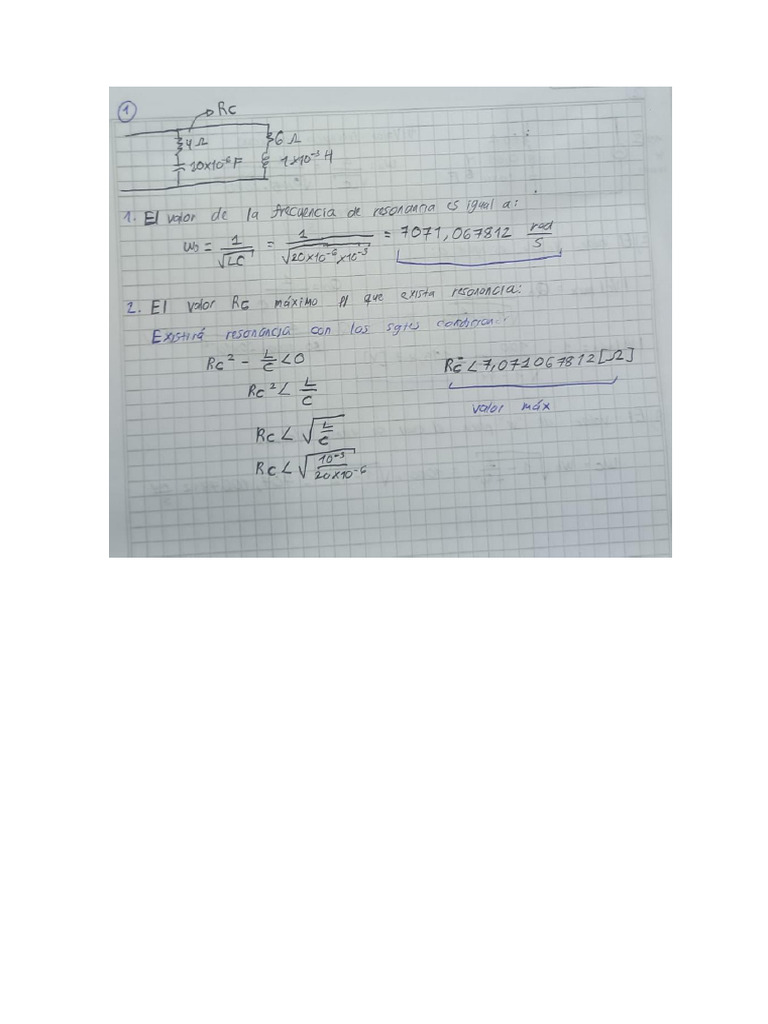 1
Rc
4Ω 6Ω
20x10⁻⁶F 1x10⁻³H
1. El valor de la frecuencia de resonancia es igual a:
ω₀ = 1/√LC = 1/√20x10⁻⁶x10⁻³ = 7071,067812 rad/s
2. El valor Rc máximo p/ que exista resonancia:
Existirá resonancia con los sgtes condicion.
Rc² - L/C < 0
Rc² < L/C
Rc < √L/C
Rc < √10⁻³/20x10⁻⁶
Rc < 7,071067812[Ω]
valor máx